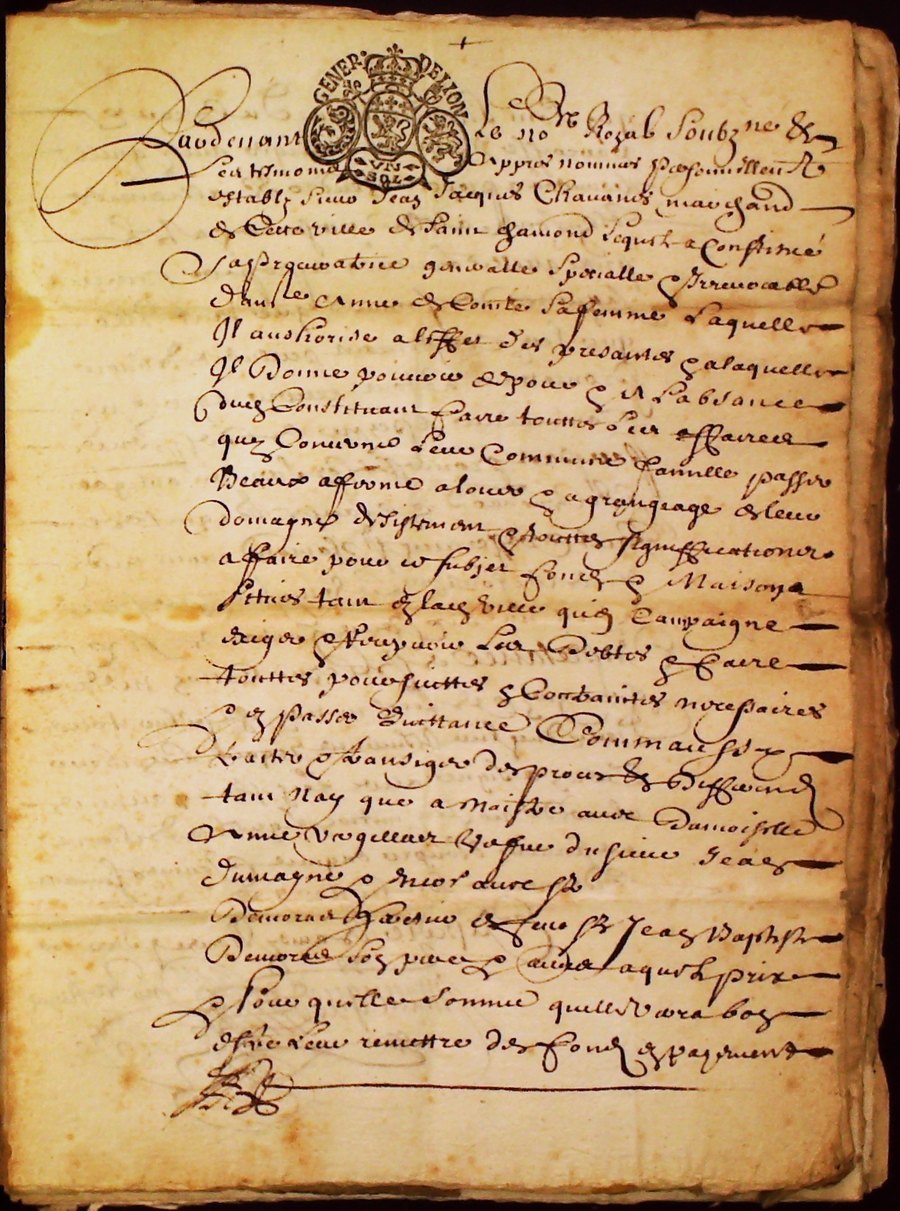 GENER. DE LION
UN SOL
Pardevant Le no.re Royal Soubz.né &
Les tesmoins appres nommes personnellem.t
estably sieur Jean Jacques Chavanes marchand
de Cette ville de Saint chamond Lequel a Constitué
sa procuratrice generalle specialle & irrevocable
Anne de Comte sa femme Laquelle
Il authorise a leffet des presantes & alaquelle
Il Donne pouvoir de pour & en Labsance
dud Constituant faire touttes Les affaires
qui Concerne Leur Commune famille passer
Beaux afferme a louer & a grangeage de leur
domagne & touttes significations
affaire pour ce subjet fonds & Maisons
situes tant en lad ville quen Campaigne
exiger & recepvoir Les Debtes & faire
touttes poursuittes & Contraintes necessaires
& en passer Quittance Comm aussy
traiter & transiger des proces & differends
tant nay que a naistre avec Damoiselle
Anne vefve du sieur Jean
Dumagne & avec sr
et feu sr Jean Baptiste
son pere & a quel prix
& pour quelle somme quelle verra bon
estre Leur remettre des fonds en payement